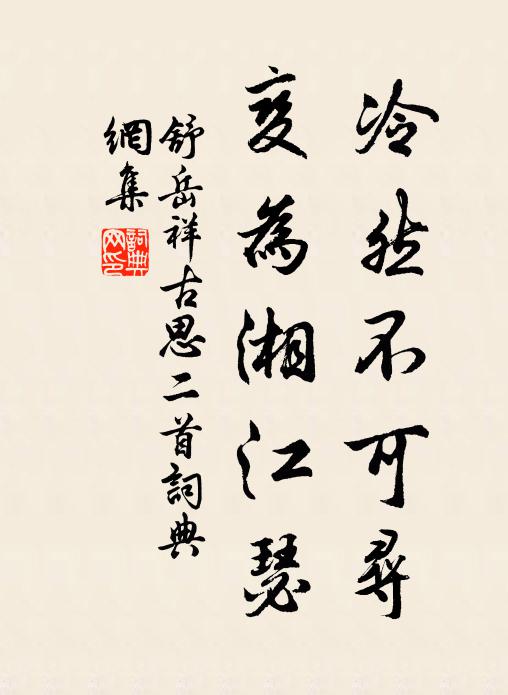 冷然不可尋
變為湘江瑟
舒岳祥古思二首詞典
網集
詞典
网印